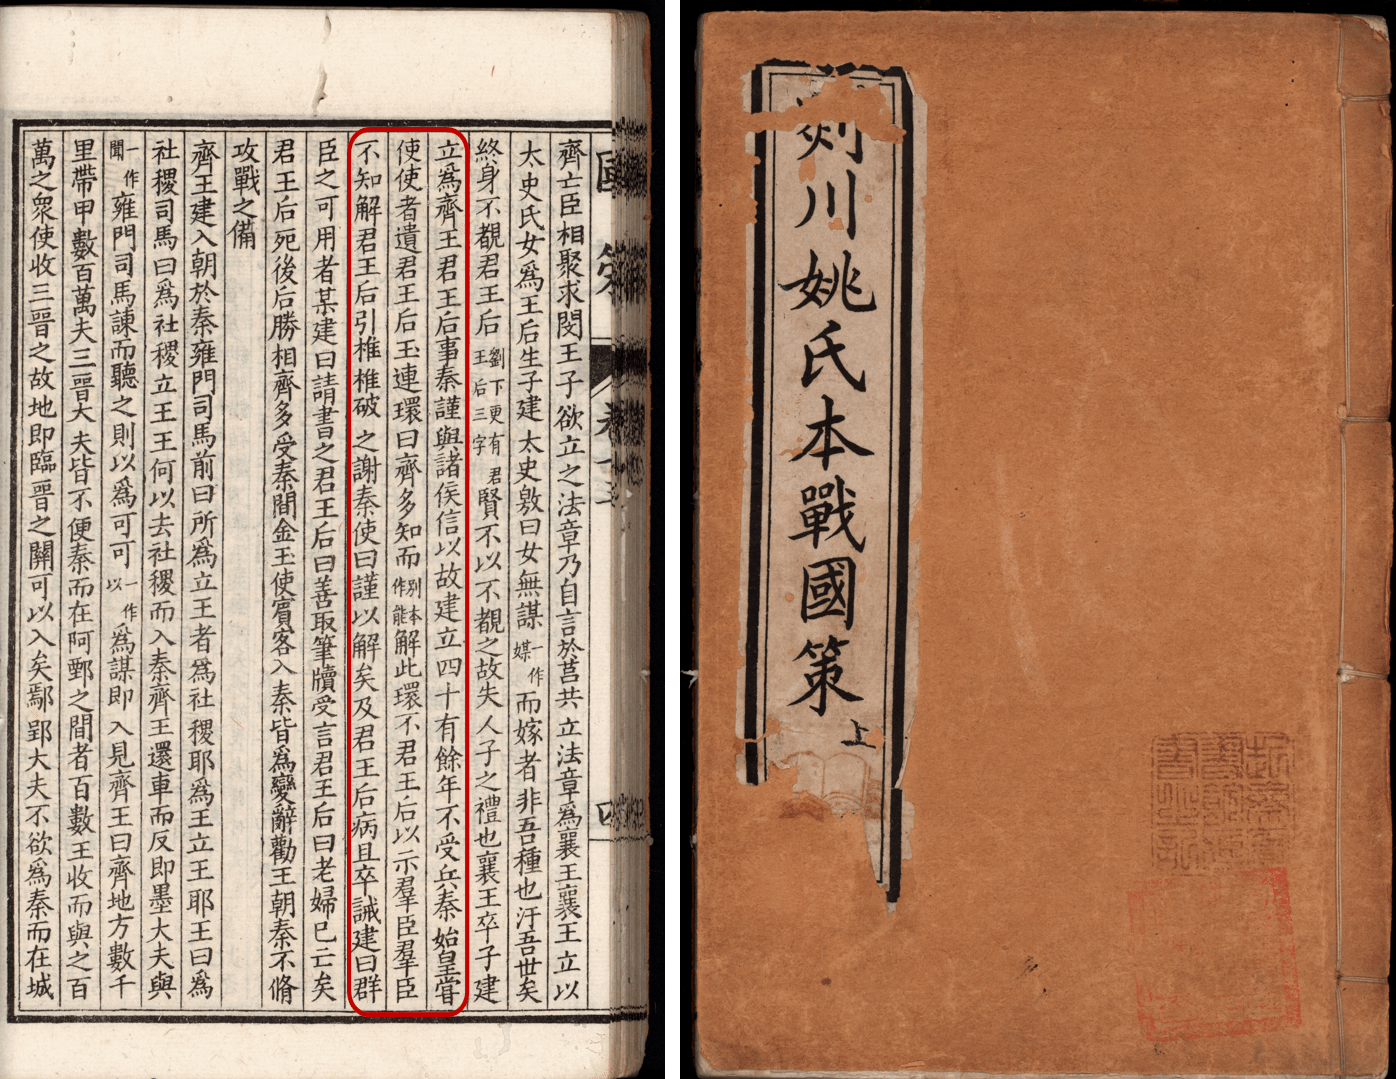 齊亡臣相聚求閔王子欲立之法章乃自言於莒共立法章爲襄王襄王立以
太史氏女爲王后生子建太史敫曰女無謀一作媒而嫁者非吾種也汙吾世矣
終身不覩君王后劉下更有君王后三字賢不以不覩之故失人子之禮也襄王卒子建
立爲齊王君王后事秦謹與諸侯信以故建立四十有餘年不受兵秦始皇嘗
使使者遺君王后玉連環曰齊多知而別本作能解此環不君王后以示羣臣羣臣
不知解君王后引椎椎破之謝秦使曰謹以解矣及君王后病且卒誡建曰群
臣之可用者某建曰請書之君王后曰善取筆牘受言君王后曰老婦已亡矣
君王后死後后勝相齊多受秦間金玉使賓客入秦皆爲變辭勸王朝秦不脩
攻戰之備
齊王建入朝於秦雍門司馬前曰所爲立王者爲社稷耶爲王立王耶王曰爲
社稷司馬曰爲社稷立王王何以去社稷而入秦齊王還車而反即墨大夫與
一作聞雍門司馬諫而聽之則以爲可可一作以爲謀即入見齊王曰齊地方數千
里帶甲數百萬夫三晉大夫皆不便秦而在阿鄄之間者百數王收而與之百
萬之衆使收三晉之故地即臨晉之關可以入矣鄢郢大夫不欲爲秦而在城
剡川姚氏本戰國策
上